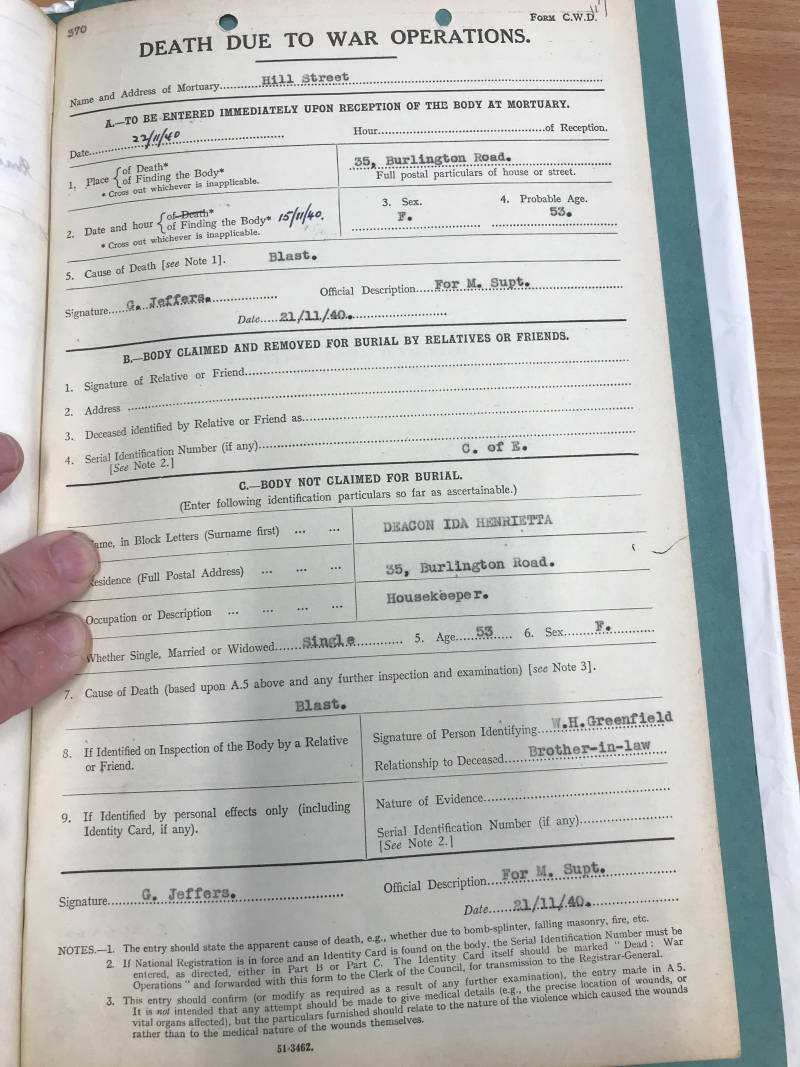 370
FORM C.W.D.
DEATH DUE TO WAR OPERATIONS.
Name and Address of Mortuary Hill Street
A.—TO BE ENTERED IMMEDIATELY UPON RECEPTION OF THE BODY AT MORTUARY.
Date 22/11/40 Hour of Reception.
1. Place { of Death* of Finding the Body* 35, Burlington Road.
* Cross out whichever is inapplicable. Full postal particulars of house or street.
2. Date and hour { of Death* of Finding the Body* 15/11/40. 3. Sex. 4. Probable Age.
* Cross out whichever is inapplicable. F. 53.
5. Cause of Death [see Note 1]. Blast.
Signature G. Jeffers. Official Description For M. Supt.
Date 21/11/40.
B.—BODY CLAIMED AND REMOVED FOR BURIAL BY RELATIVES OR FRIENDS.
1. Signature of Relative or Friend
2. Address
3. Deceased identified by Relative or Friend as
4. Serial Identification Number (if any)
[See Note 2.] C. of E.
C.—BODY NOT CLAIMED FOR BURIAL.
(Enter following identification particulars so far as ascertainable.)
ame, in Block Letters (Surname first) ... ... DEACON IDA HENRIETTA
esidence (Full Postal Address) ... ... ... 35, Burlington Road.
Occupation or Description ... ... ... ... Housekeeper.
Whether Single, Married or Widowed Single 5. Age 53 6. Sex F.
7. Cause of Death (based upon A.5 above and any further inspection and examination) [see Note 3].
Blast.
8. If Identified on Inspection of the Body by a Relative or Friend.
Signature of Person Identifying W.H.Greenfield
Relationship to Deceased Brother-in-law
9. If Identified by personal effects only (including Identity Card, if any).
Nature of Evidence
Serial Identification Number (if any)
[See Note 2.]
Signature G. Jeffers. Official Description For M. Supt.
Date 21/11/40.
NOTES.—1. The entry should state the apparent cause of death, e.g., whether due to bomb-splinter, falling masonry, fire, etc.
2. If National Registration is in force and an Identity Card is found on the body, the Serial Identification Number must be
entered, as directed, either in Part B or Part C. The Identity Card itself should be marked "Dead: War
Operations" and forwarded with this form to the Clerk of the Council, for transmission to the Registrar-General.
3. This entry should confirm (or modify as required as a result of any further examination), the entry made in A 5.
It is not intended that any attempt should be made to give medical details (e.g., the precise location of wounds, or
vital organs affected), but the particulars furnished should relate to the nature of the violence which caused the wounds
rather than to the medical nature of the wounds themselves.
51-3462.